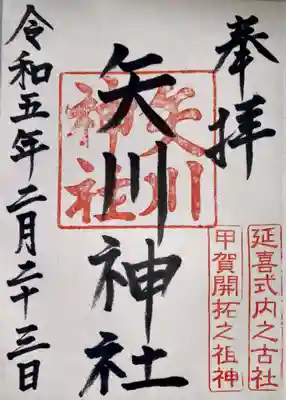 奉拝
延喜式内之古社
甲賀開拓之祖神
矢川神社
矢川
神社
令和五年二月二十三日